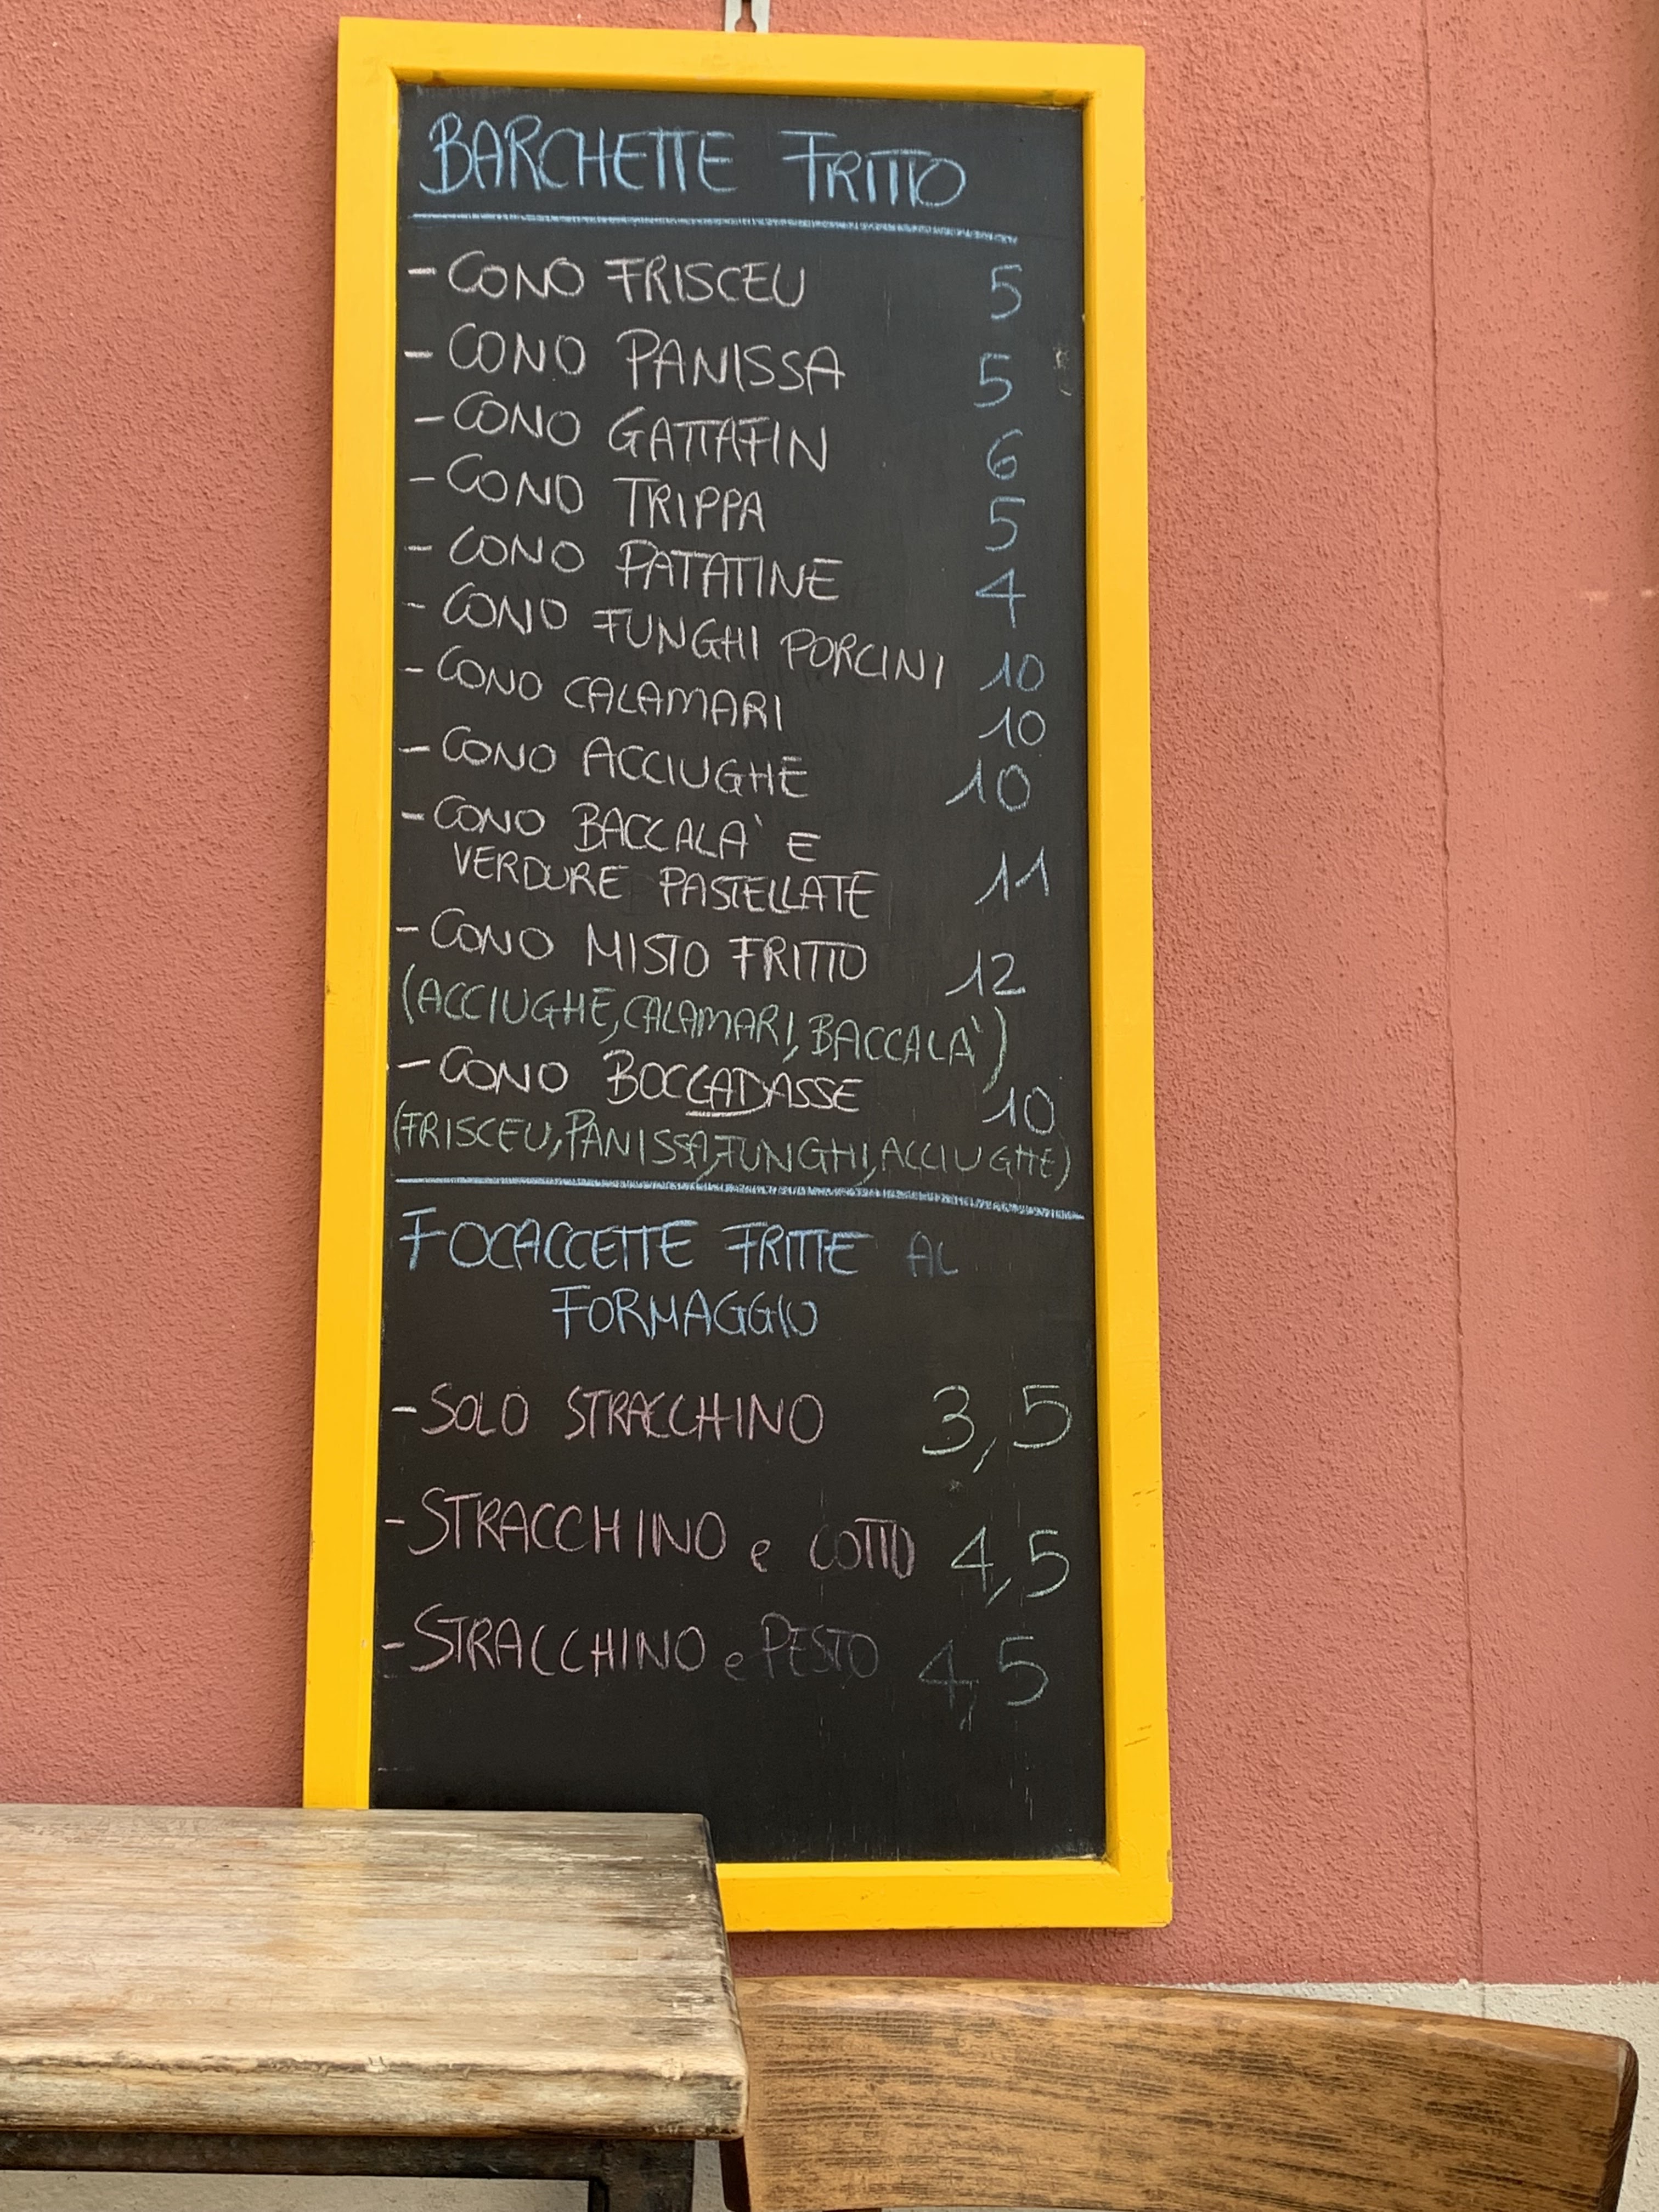 BARCHETTE FRITTO
- CONO FRISCEU 5
- CONO PANISSA 5
- CONO GATTAFIN 6
- CONO TRIPPA 5
- CONO PATATINE 4
- CONO FUNGHI PORCINI 10
- CONO CALAMARI 10
- CONO ACCIUGHE 10
- CONO BACCALA' E
VERDURE PASTELLATE 11
- CONO MISTO FRITTO 12
(ACCIUGHE, CALAMARI, BACCALA')
- CONO BOCCADASSE 10
(FRISCEU, PANISSA, FUNGHI, ACCIUGHE)
FOCACCETTE FRITTE AL
FORMAGGIO
- SOLO STRACCHINO 3,5
- STRACCHINO e COTTO 4,5
- STRACCHINO e PESTO 4,5